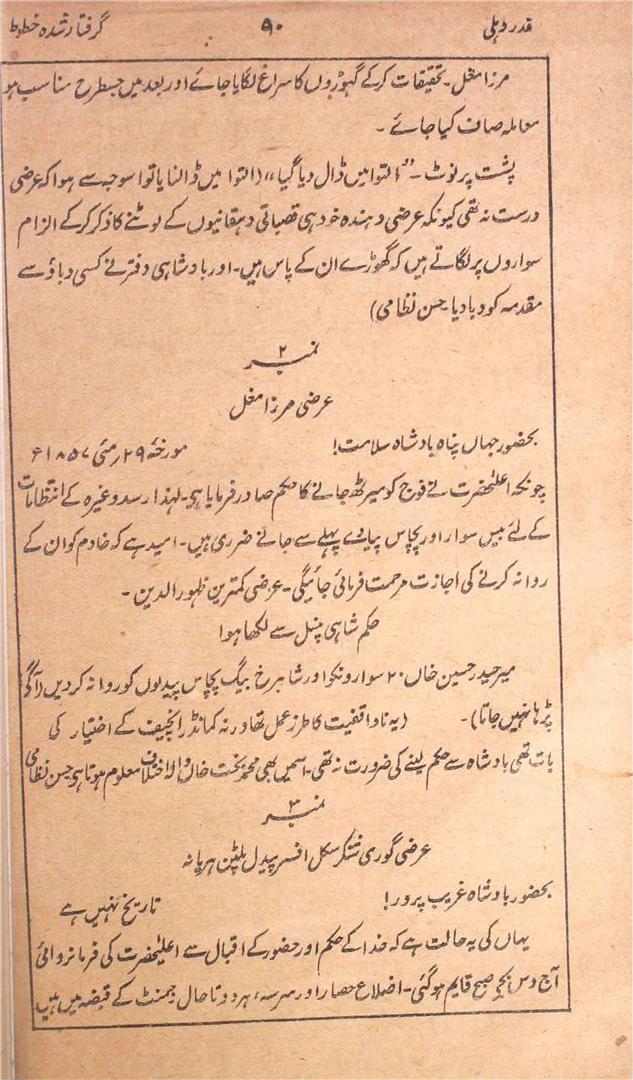 گرفتار شدہ خطوط ۹۰ غدر دہلی
مرزا مغل۔ تحقیقات کرکے گہوڑوں کا سراغ لگایا جائے اور بعد میں جسطرح مناسب ہو
معاملہ صاف کیا جائے۔
پشت پر نوٹ۔ "التوا میں ڈال دیا گیا" (التوا میں ڈالنا یا تو اسوجہ سے ہوا کہ عرضی
درست نہ تھی کیونکہ عرضی دہندہ خود ہی قصباتی دہقانیوں کے لوٹنے کا ذکر کرکے الزام
سواروں پر لگاتے ہیں کہ گھوڑے ان کے پاس ہیں۔ اور بادشاہی دفتر نے کسی دباؤ سے
مقدمہ کو دبا دیا۔ حسن نظامی)
نمبر ۲
عرضی مرزا مغل
بحضور جہاں پناہ بادشاہ سلامت! مورخہ ۲۹ مئی ۱۸۵۷ء
چونکہ اعلیٰحضرت نے فوج کو میرٹھ جانے کا حکم صادر فرمایا ہی۔ لہذا رسد وغیرہ کے انتظامات
کے لئے بیس سوار اور پچاس پیادے پہلے سے جانے ضروری ہیں۔ امید ہے کہ خادم کو ان کے
روانہ کرنے کی اجازت مرحمت فرمائی جائیگی۔ عرضی کمترین ظہور الدین۔
حکم شاہی پنسل سے لکھا ہوا
میر حیدر حسین خاں ۲۰ سوارونکو اور شاہرخ بیگ پچاس پیدلوں کو روانہ کردیں (آگے
پڑہا نہیں جاتا)۔ (یہ ناواقفیت کا طرز عمل تھا ورنہ کمانڈر انچیف کے اختیار کی
بات تھی بادشاہ سے حکم لینے کی ضرورت نہ تھی۔ اسمیں بھی محمد بخت خاں والا اختلاف معلوم ہوتا ہی حسن نظامی
نمبر ۳
عرضی گوری شنکر سکل افسر پیدل پلٹن ہریانہ
بحضور بادشاہ غریب پرور! تاریخ نہیں ہے
یہاں کی یہ حالت ہے کہ خدا کے حکم اور حضور کے اقبال سے اعلیٰحضرت کی فرمانروائی
آج دس بجے صبح قایم ہوگئی۔ اضلاع حصار اور سرسہ، ہر دو تا حال جمنٹ کے قبضہ میں ہیں